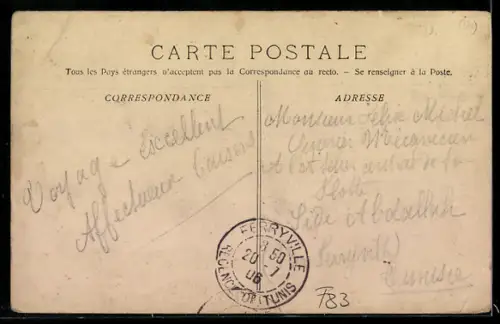 CARTE POSTALE
Tous les Pays étrangers n'acceptent pas la Correspondance au recto. – Se renseigner à la Poste.
CORRESPONDANCE
ADRESSE
Voyage Excellent
Affectueux baisers
Monsieur Félix Michel
Ouvrier Mécanicien
A l'atelier central de la
flotte
Sidi Abdallah
Ferryville
Tunisie
FERRYVILLE
50
20-7
06
REGENCE DE TUNIS
F83